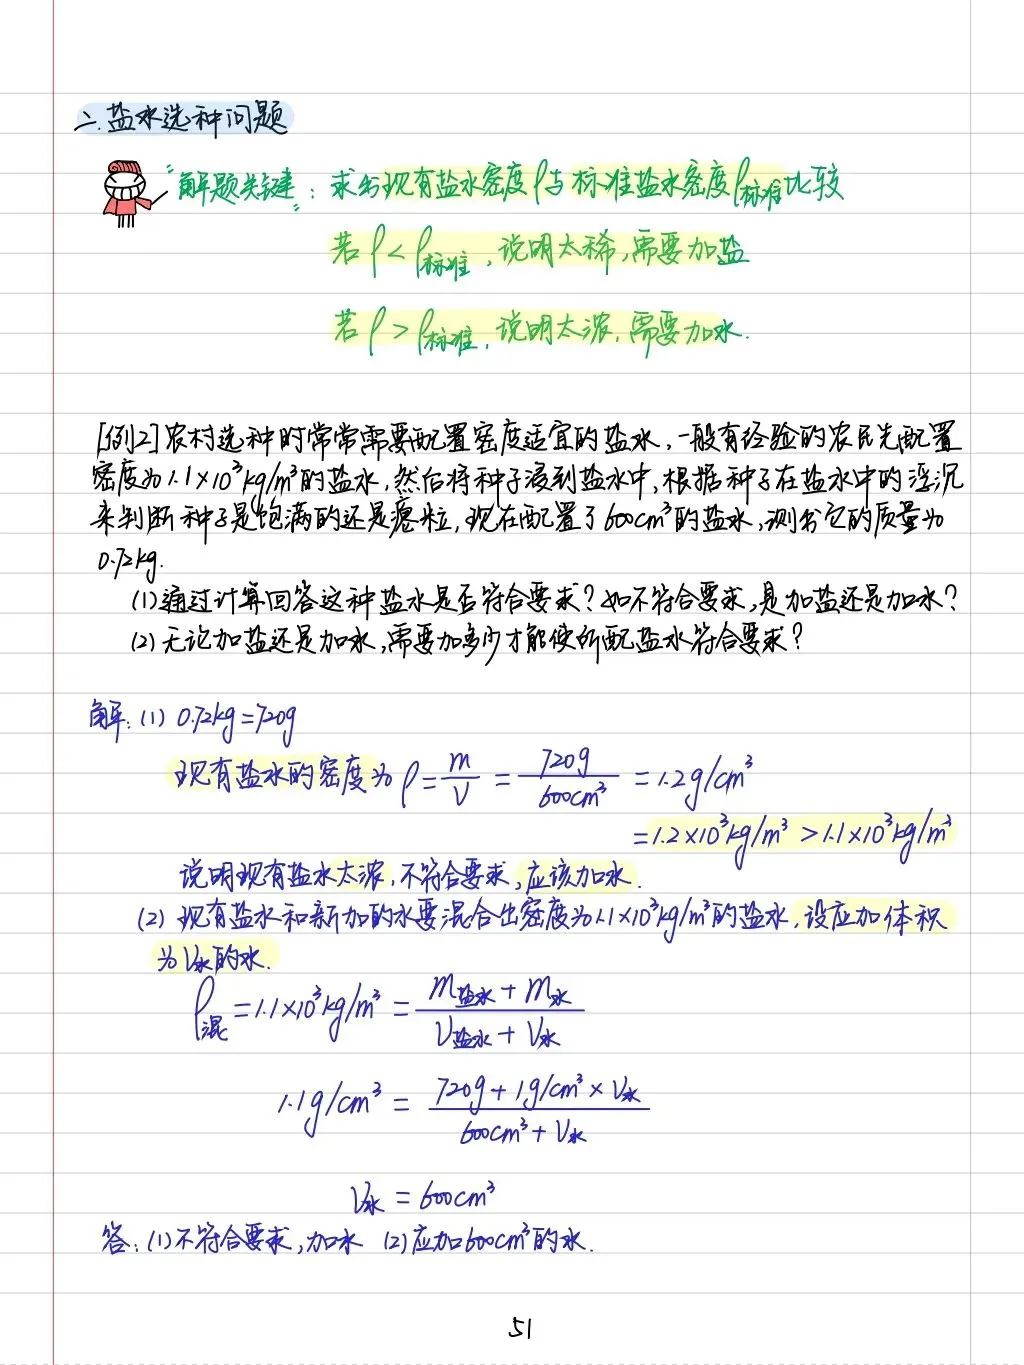 二.盐水选种问题
"解题关键":求出现有盐水密度ρ与标准盐水密度ρ标准比较
若ρ<ρ标准,说明太稀,需要加盐
若ρ>ρ标准,说明太浓,需要加水.
[例2]农村选种时常常需要配置密度适宜的盐水,一般有经验的农民先配置
密度为1.1×10³kg/m³的盐水,然后将种子浸到盐水中,根据种子在盐水中的浮沉
来判断种子是饱满的还是瘪粒,现在配置了600cm³的盐水,测出它的质量为
0.72kg.
(1)通过计算回答这种盐水是否符合要求?如不符合要求,是加盐还是加水?
(2)无论加盐还是加水,需要加多少才能使所配盐水符合要求?
解:(1) 0.72kg=720g
现有盐水的密度为ρ=m/V=720g/600cm³=1.2g/cm³
=1.2×10³kg/m³>1.1×10³kg/m³
说明现有盐水太浓,不符合要求,应该加水.
(2)现有盐水和新加的水要混合出密度为1.1×10³kg/m³的盐水,设应加体积
为V水的水.
ρ混=1.1×10³kg/m³=(m盐水+m水)/(V盐水+V水)
1.1g/cm³=(720g+1g/cm³×V水)/(600cm³+V水)
V水=600cm³
答:(1)不符合要求,加水 (2)应加600cm³的水.
51